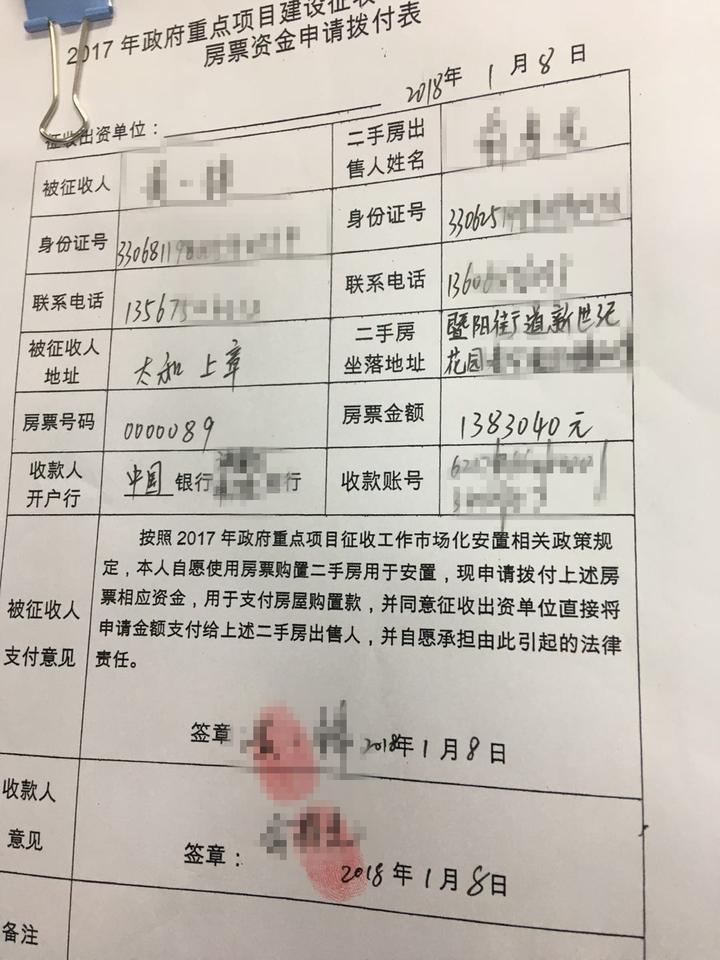 2017年政府重点项目建设征收
房票资金申请拨付表
2018年 1月8日
征收出资单位：
被征收人
二手房出
售人姓名
身份证号 330681198
身份证号 330625
联系电话 13567
联系电话 1360
被征收人
地址 大和上章
二手房
坐落地址 暨阳街道新世纪
花园
房票号码 0000089
房票金额 1383040元
收款人
开户行 中国 银行 行
收款账号
被征收人
支付意见
按照2017年政府重点项目征收工作市场化安置相关政策规
定，本人自愿使用房票购置二手房用于安置，现申请拨付上述房
票相应资金，用于支付房屋购置款，并同意征收出资单位直接将
申请金额支付给上述二手房出售人，并自愿承担由此引起的法律
责任。
签章 2018年1月8日
收款人
意见
签章：
2018年1月8日
备注